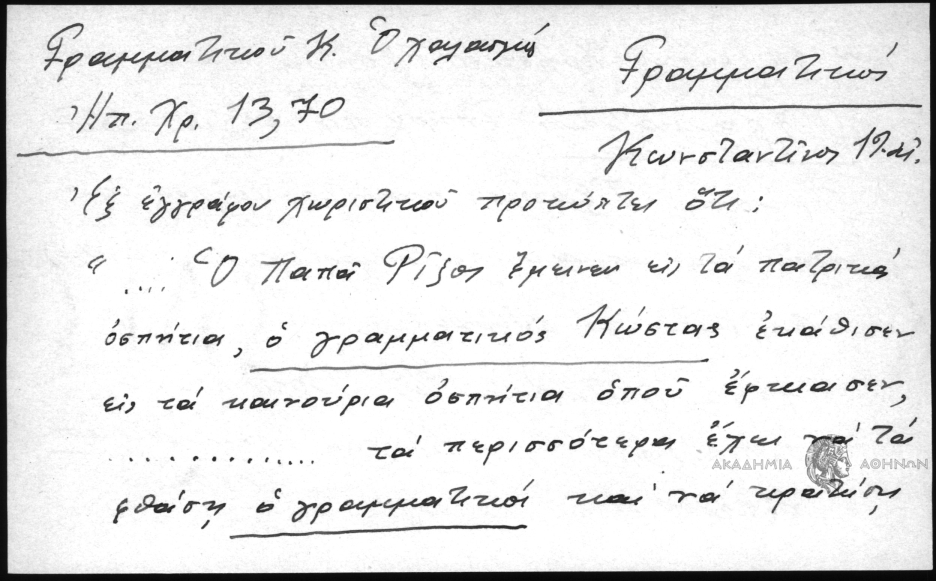 Γραμματικοῦ Κ. Ὁ χαλασμός
Ἠπ. Χρ. 13,70
Γραμματικός
Κωνσταντῖνος
Ἐξ ἐγγράφου χωριστικοῦ προκύπτει ὅτι:
"..... Ὁ Παπᾶ Ρίζος ἔμεινεν εἰς τά πατρικά
ὁσπήτια, ὁ γραμματικός Κώστας ἐκάθισεν
εἰς τά καινούρια ὁσπήτια ὁποῦ ἔφτιασεν,
.............. τά περισσότερα ἔχει νά τά
φθάσῃ ὁ γραμματικός καί νά κρατήσῃ
ΑΚΑΔΗΜΙΑ ΑΘΗΝΩΝ